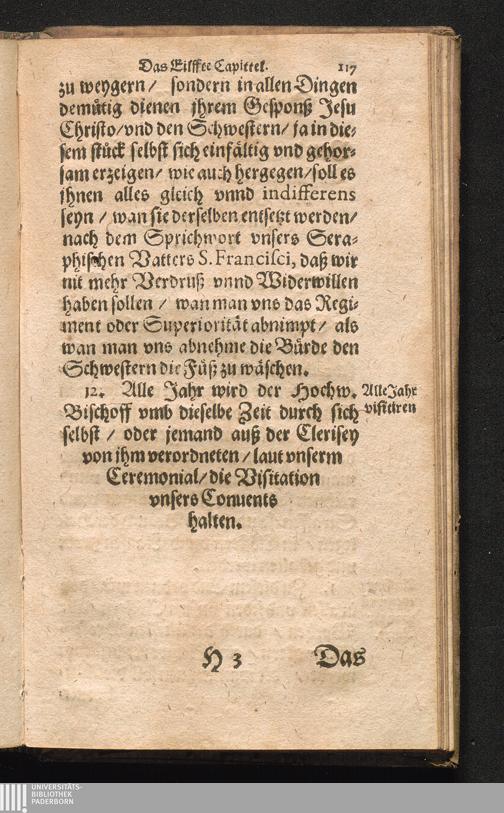 Das Eilffte Capittel. 117
zu weygern / sondern in allen Dingen
demütig dienen jhrem Gesponß Jesu
Christo / vnd den Schwestern / ja in die⸗
sem stück selbst sich einfältig vnd gehor⸗
sam erzeigen / wie auch hergegen / soll es
jhnen alles gleich vnnd indifferens
seyn / wan sie derselben entsetzt werden /
nach dem Sprichwort vnsers Sera⸗
phischen Vatters S. Francisci, daß wir
nit mehr Verdruß vnnd Widerwillen
haben sollen / wan man vns das Regi⸗
ment oder Superiorität abnimpt / als
wan man vns abnehme die Bürde den
Schwestern die Füß zu wäschen.
12. Alle Jahr wird der Hochw.
Bischoff vmb dieselbe Zeit durch sich
selbst / oder jemand auß der Clerisey
von jhm verordneten / laut vnserm
Ceremonial / die Visitation
vnsers Conuents
halten.
Alle Jahr
visitiren
H 3 Das
UNIVERSITÄTS-
BIBLIOTHEK
PADERBORN